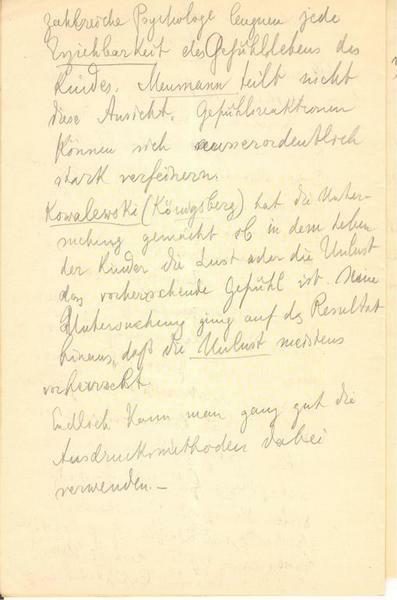 zahlreiche Psychologe leugnen jede
Erziehbarkeit des Gefühllebens des
Kindes. Meumann teilt nicht
diese Ansicht. Gefühlsreaktionen
können sich ausserordentlich
stark verfeinern.
Kowalewski (Königsberg) hat die Unter-
suchung gemacht ob in dem Leben
der Kinder die Lust oder die Unlust
das vorherschende Gefühl ist.
Untersuchung ging auf das Resultat
hinaus, daß die Unlust meistens
vorherrscht
Endlich kann man ganz gut die
Ausdrucksmethoden dabei
verwenden. —